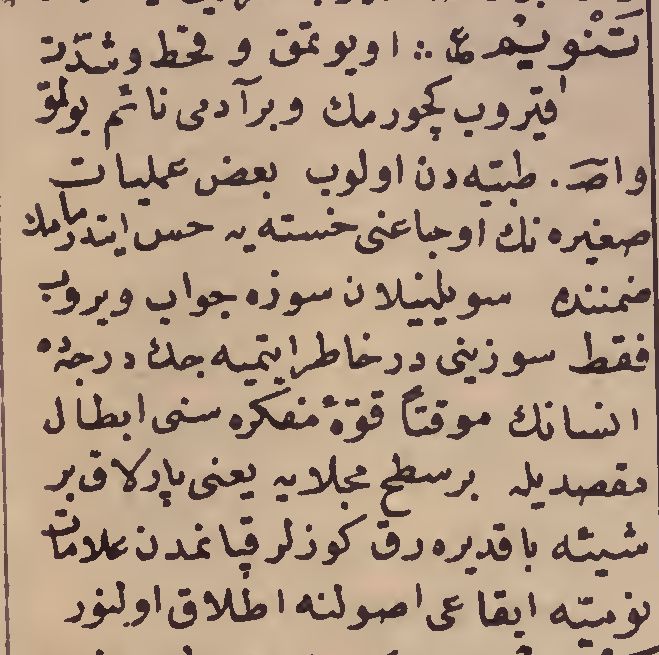 تَنْويمْ ع :: اويوتمق و قحط و شدّت
اقتروب كچورمك و برآدمی نائم بولمق
واصـ . طبيّه دن اولوب بعض عمليات
صغيره نك اوجاعنی خسته يه حس ايتدرمامك
ضمننده سويلنيلان سوزه جواب ويروب
فقط سوزينی درخاطر ايتميه جك درجهٔ
انسانك موقتاً قوّهٔ مفكره سنی ابطال
مقصديله برسطح مجلايه يعنی پارلاق بر
شيئه باقديره رق كوزلر قپانمدن علامات
نوميّه ايقاعی اصولنه اطلاق اولنور